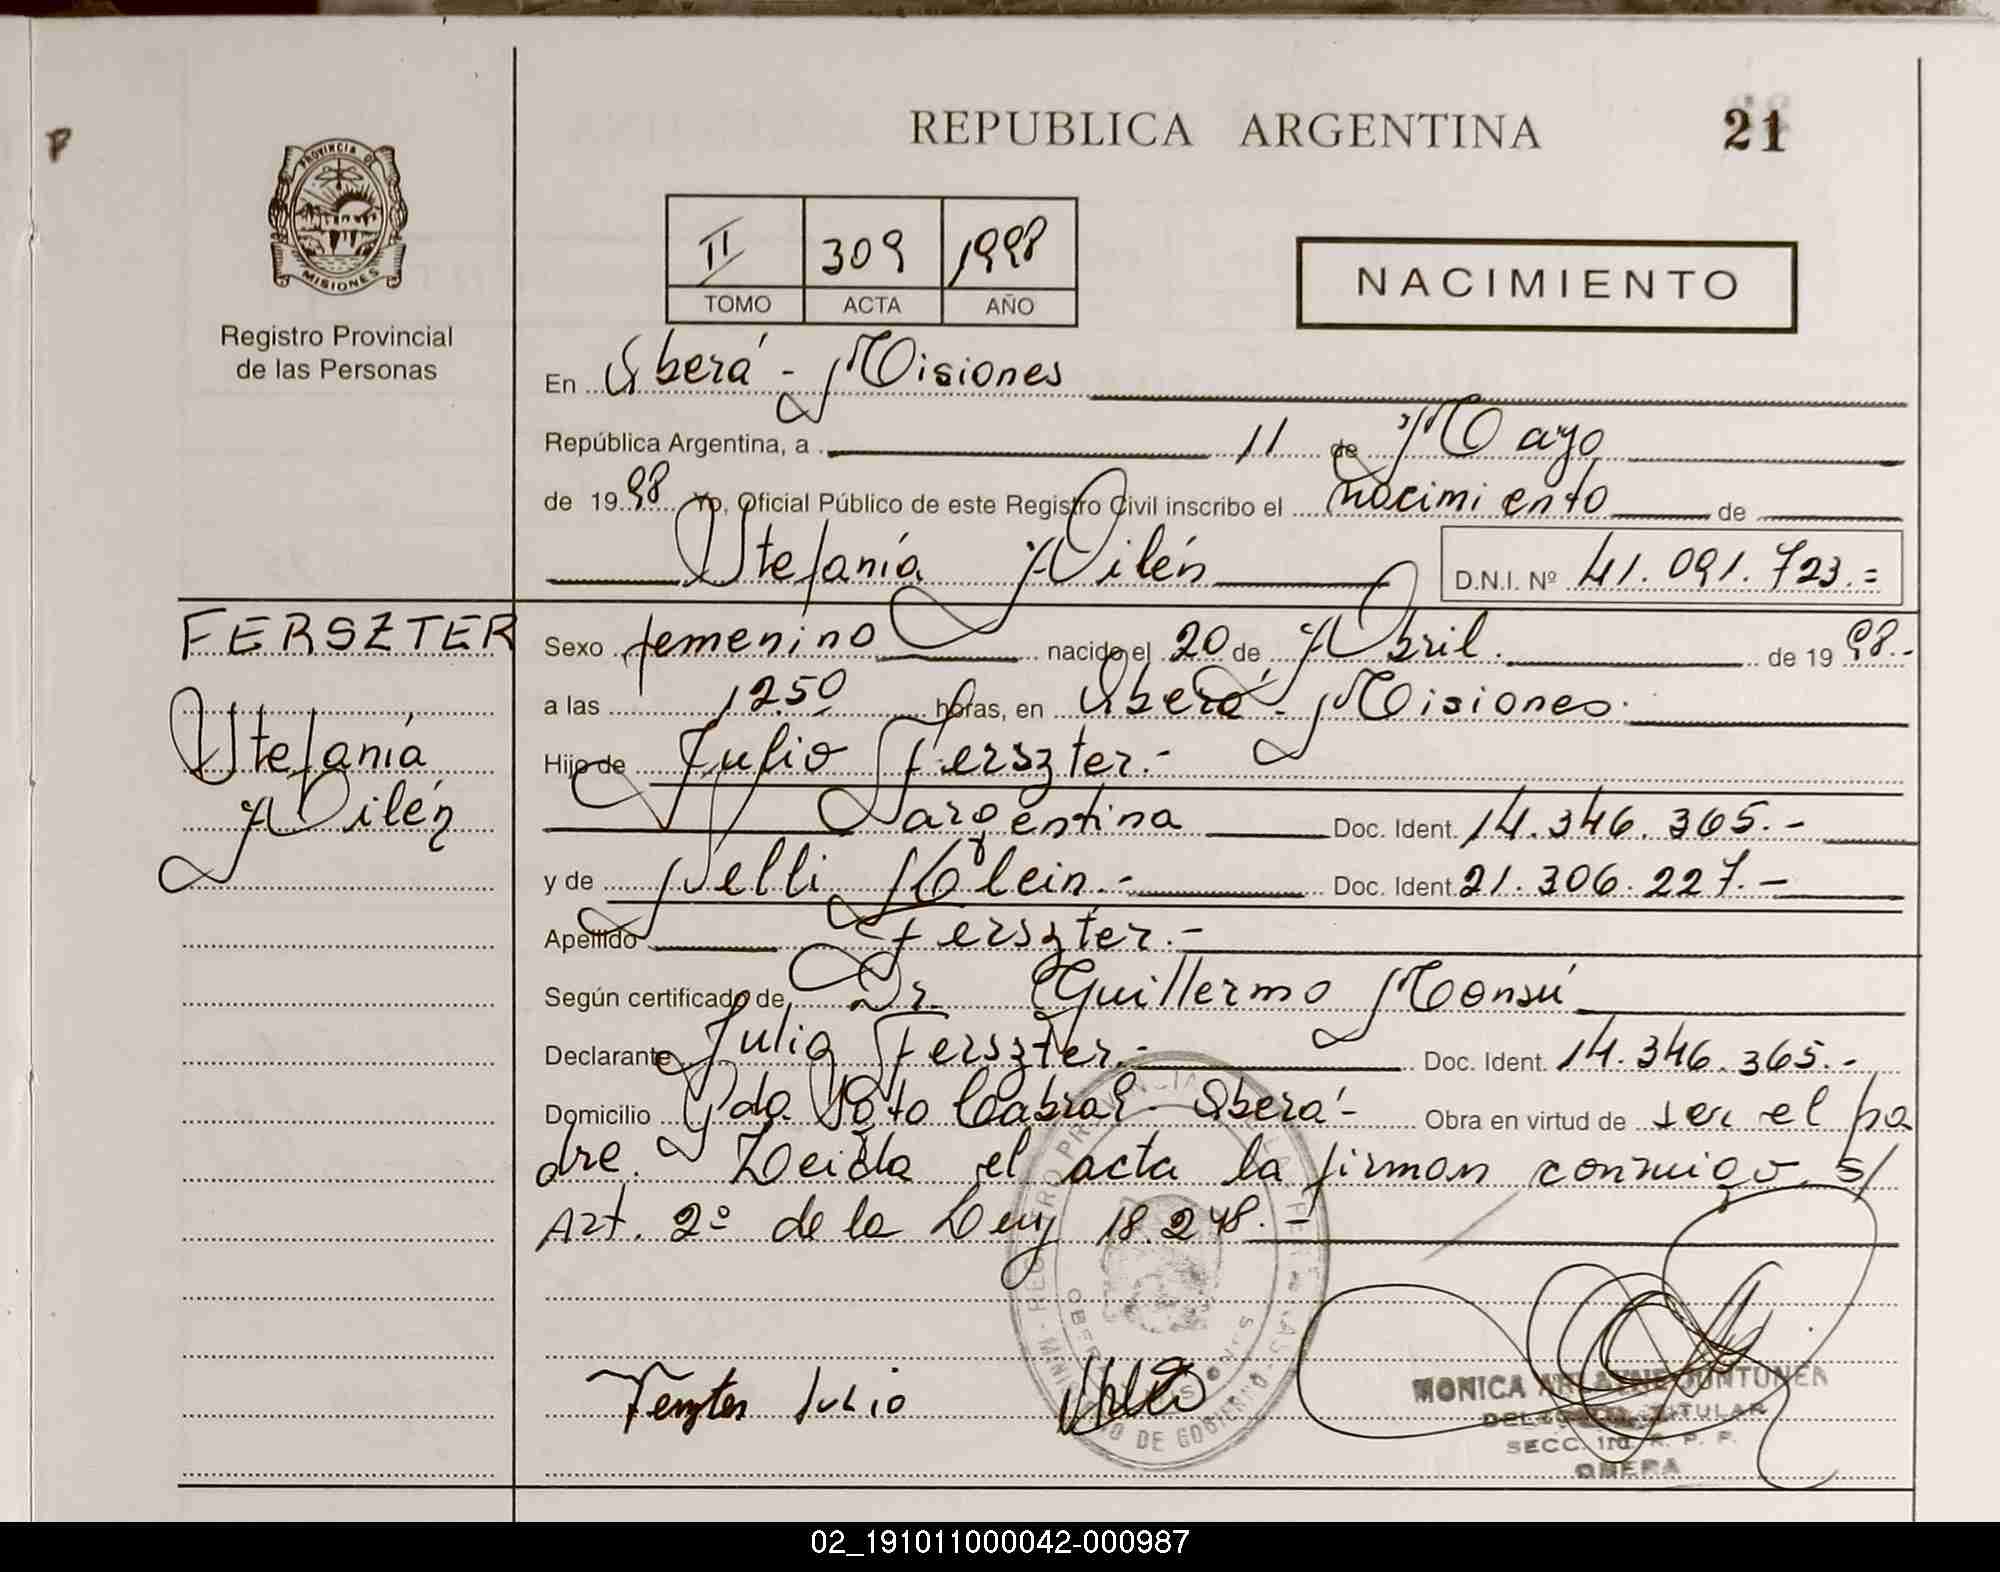 REPUBLICA ARGENTINA
21
F
PROVINCIA DE
MISIONES
Registro Provincial
de las Personas
II 309 1998
TOMO ACTA AÑO
NACIMIENTO
En Oberá - Misiones
República Argentina, a 11 de Mayo
de 1998 Yo, Oficial Público de este Registro Civil inscribo el nacimiento de
Stefanía Ailén D.N.I. Nº 41.091.723.=
FERSZTER
Stefanía
Ailén
Sexo femenino nacido el 20 de Abril. de 1998.-
a las 12.50 horas, en Oberá - Misiones.
Hijo de Julio Ferszter.-
argentina Doc. Ident. 14.346.365.-
y de Nelli Klein.- Doc. Ident. 21.306.227.-
Apellido Ferszter.-
Según certificado de Dr. Guillermo Monsú
Declarante Julio Ferszter.- Doc. Ident. 14.346.365.-
Domicilio Pdo. Soto Cabral - Oberá - Obra en virtud de ser el pa
dre. Leída el acta la firman conmigo s/
Art. 2º de la Ley 18.248.-
Ferszter Julio
MONICA
TITULAR
SECC. R. P. P.
OBERA
DE GOBIERNO
02_191011000042-000987